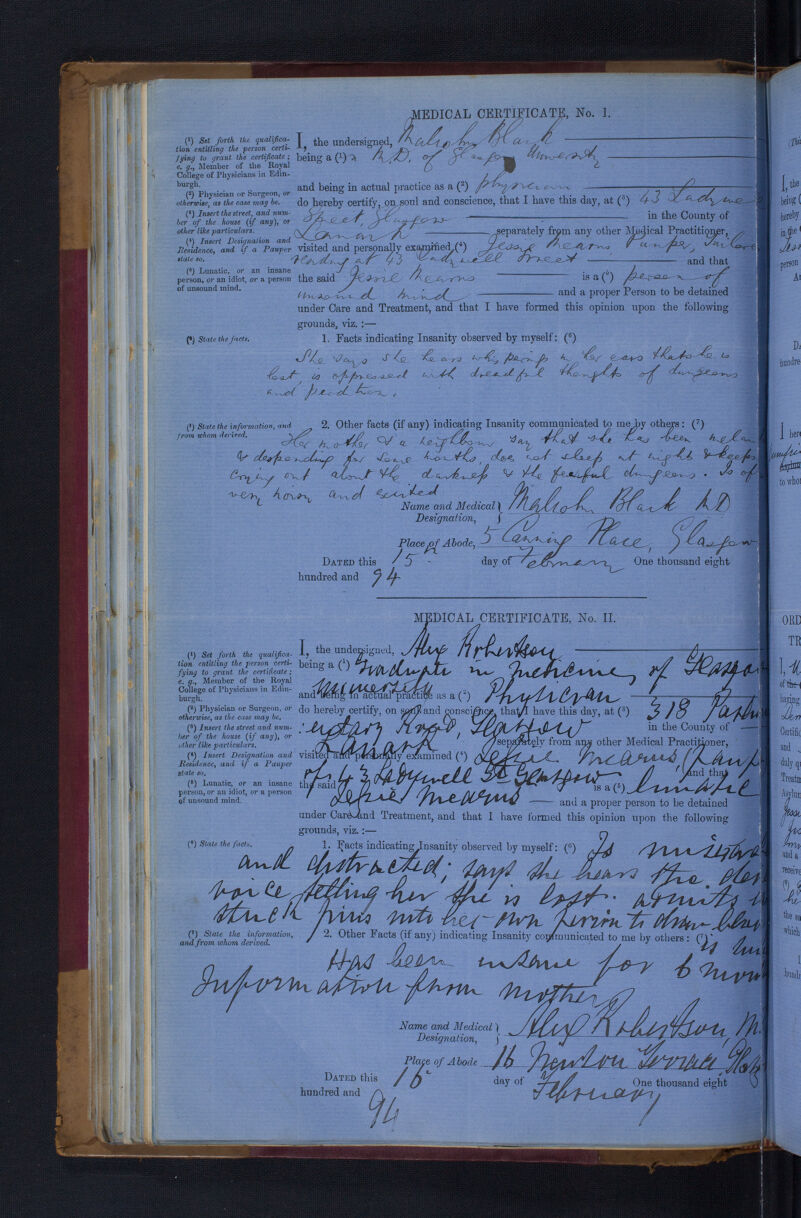 MEDICAL CERTIFICATE, No. I.
(1) Set forth the qualifica-
tion entitling the person certi-
fying to grant the certificate;
e. g., Member of the Royal
College of Physicians in Edin-
burgh.
(2) Physician or Surgeon, or
otherwise, as the case may be.
(3) Insert the street, and num-
ber of the house (if any), or
other like particulars.
(4) Insert Designation and
Residence, and if a Pauper
state so.
(5) Lunatic, or an insane
person, or an idiot, or a person
of unsound mind.
I, the undersigned, Malcolm Black
being a (1) M.D. of Glasgow University
and being in actual practice as a (2) physician
do hereby certify, on soul and conscience, that I have this day, at (3) 43 Ladywe
Street, Glasgow in the County of
Lanark separately from any other Medical Practitioner,
visited and personally examined, (4) Jessie Mearns Pauper,
residing at 43 Ladywell Street and that
the said Jessie Mearns is a (5) person of
unsound mind and a proper Person to be detained
under Care and Treatment, and that I have formed this opinion upon the following
grounds, viz. :—
(6) State the facts.
1. Facts indicating Insanity observed by myself: (6)
She says she hears whisperings in her ears that she is
lost, is oppressed with dreadful thoughts of dungeons
and perdition.
(7) State the information, and
from whom derived.
2. Other facts (if any) indicating Insanity communicated to me by others: (7)
Her mother & a neighbour say that she has been melan
& desponding for some months, does not sleep at night & keeps
crying out about the darkness & the fearful dungeons. Is of
very and excited
Name and Medical Designation, Malcolm Black M.D
Place of Abode, 5 Canning Place, Glasgow
DATED this 15 day of February One thousand eight
hundred and 94
MEDICAL CERTIFICATE, No. II.
(1) Set forth the qualifica-
tion entitling the person certi-
fying to grant the certificate;
e. g., Member of the Royal
College of Physicians in Edin-
burgh.
(2) Physician or Surgeon, or
otherwise, as the case may be.
(3) Insert the street and num-
ber of the house (if any), or
other like particulars.
(4) Insert Designation and
Residence, and if a Pauper
state so.
(5) Lunatic, or an insane
person, or an idiot, or a person
of unsound mind.
I, the undersigned, Alex Robertson
being a (1) Graduate in Medicine, of Glasgow
University
and being in actual practice as a (2) Physician
do hereby certify, on soul and conscience, that I have this day, at (3) 318 Parlia
:entary Road, Glasgow in the County of
Lanark separately from any other Medical Practitioner,
visited and personally examined (4) Jessie Mearns (Paup
of 43 Ladywell St Glasgow and that
the said Jessie Mearns is a (5) lunatic
and a proper person to be detained
under Care and Treatment, and that I have formed this opinion upon the following
grounds, viz. :—
(6) State the facts.
1. Facts indicating Insanity observed by myself: (6) Is misera
and distracted; says she hears the
voice telling her she is lost. admits
stuck pins into her own person to draw
(7) State the information,
and from whom derived.
2. Other Facts (if any) indicating Insanity communicated to me by others: (7)
Has been insane for 6 mon
Information from mother
Name and Medical Designation, Alex Robertson, M.
Place of Abode 16 Newton Terrace,
DATED this 16 day of February One thousand eight
hundred and 94